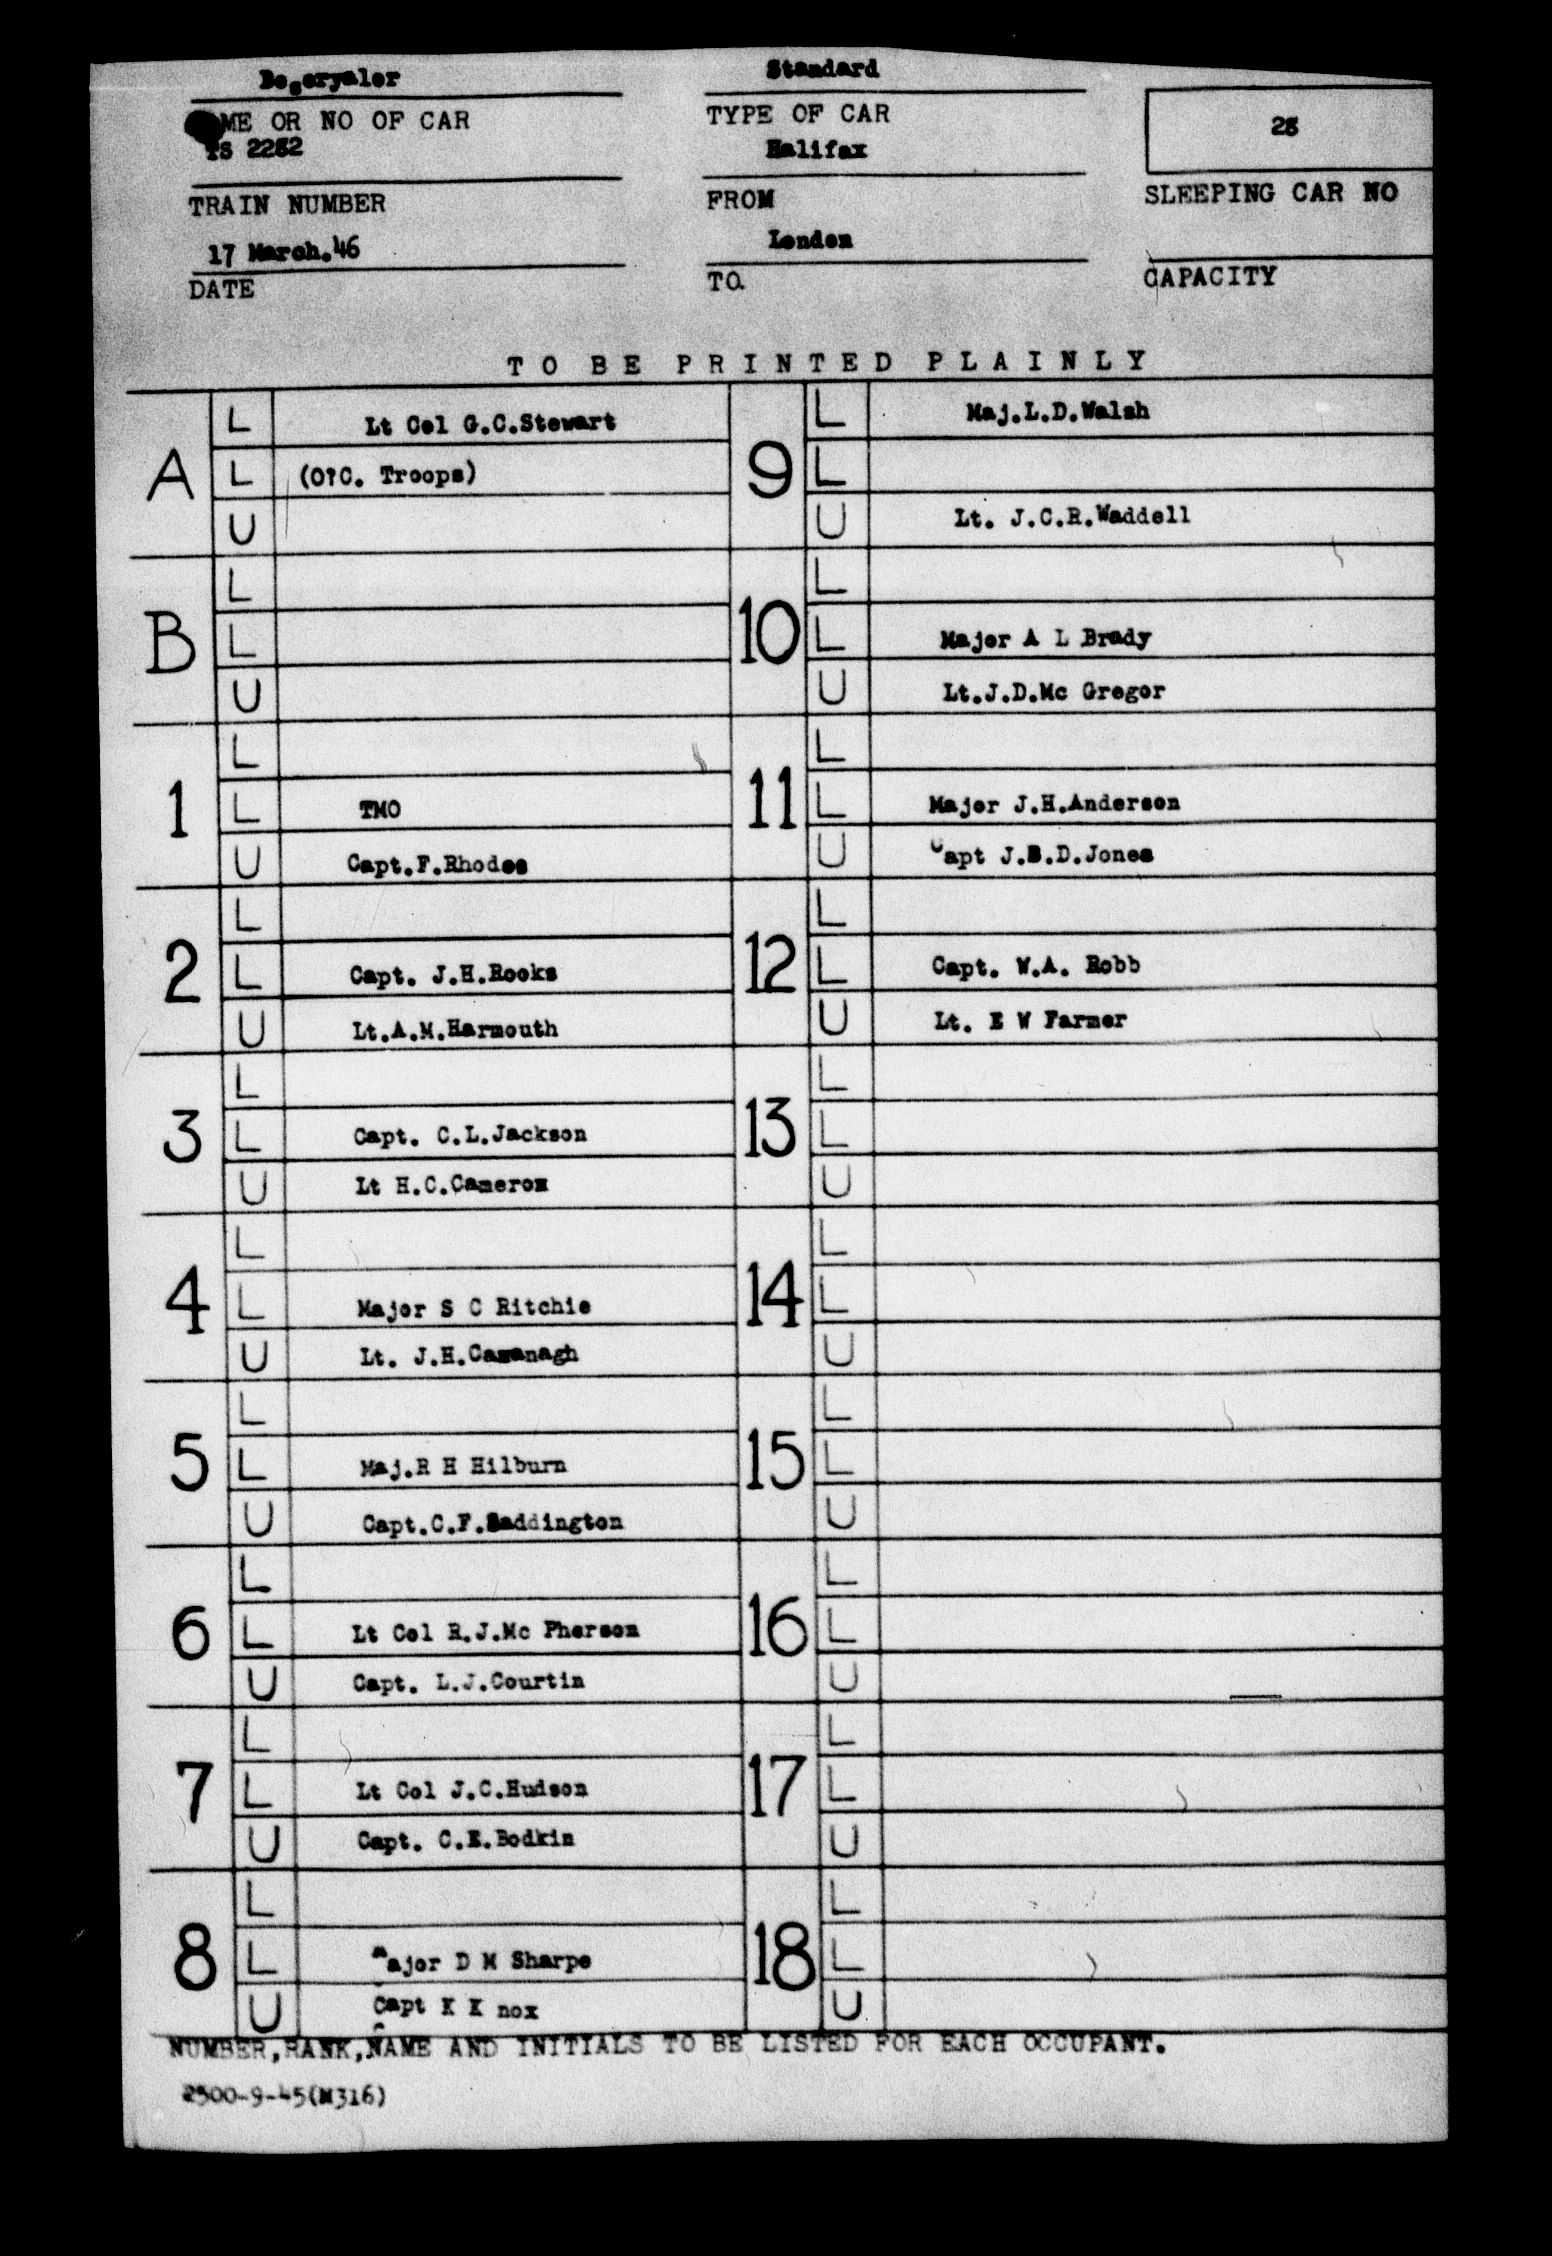 Standard
ME OR NO OF CAR
TYPE OF CAR
28
TS 2282
Halifax
TRAIN NUMBER
FROM
SLEEPING CAR NO
17 March.46
London
DATE
TO
CAPACITY
TO BE PRINTED PLAINLY
A
L Lt Col G.C.Stewart
L (O?C. Troops)
U
B
L
L
U
1
L
L TMO
U Capt.F.Rhodes
2
L
L Capt. J.H.Rooks
U Lt.A.M.Harmouth
3
L
L Capt. C.L.Jackson
U Lt H.C.Cameron
4
L
L Major S C Ritchie
U Lt. J.H.Cavanagh
5
L
L Maj.R H Hilburn
U Capt.C.F.Saddington
6
L
L Lt Col R.J.Mc Pherson
U Capt. L.J.Courtin
7
L
L Lt Col J.C.Hudson
U Capt. C.E.Bodkin
8
L
L Major D M Sharpe
U Capt K K nox
9
L Maj.L.D.Walsh
L
U Lt. J.C.R.Waddell
10
L
L Major A L Brady
U Lt.J.D.Mc Gregor
11
L
L Major J.H.Anderson
U Capt J.B.D.Jones
12
L
L Capt. W.A. Robb
U Lt. E W Farmer
13
L
L
U
14
L
L
U
15
L
L
U
16
L
L
U
17
L
L
U
18
L
L
U
NUMBER,RANK,NAME AND INITIALS TO BE LISTED FOR EACH OCCUPANT.
2500-9-45(M316)